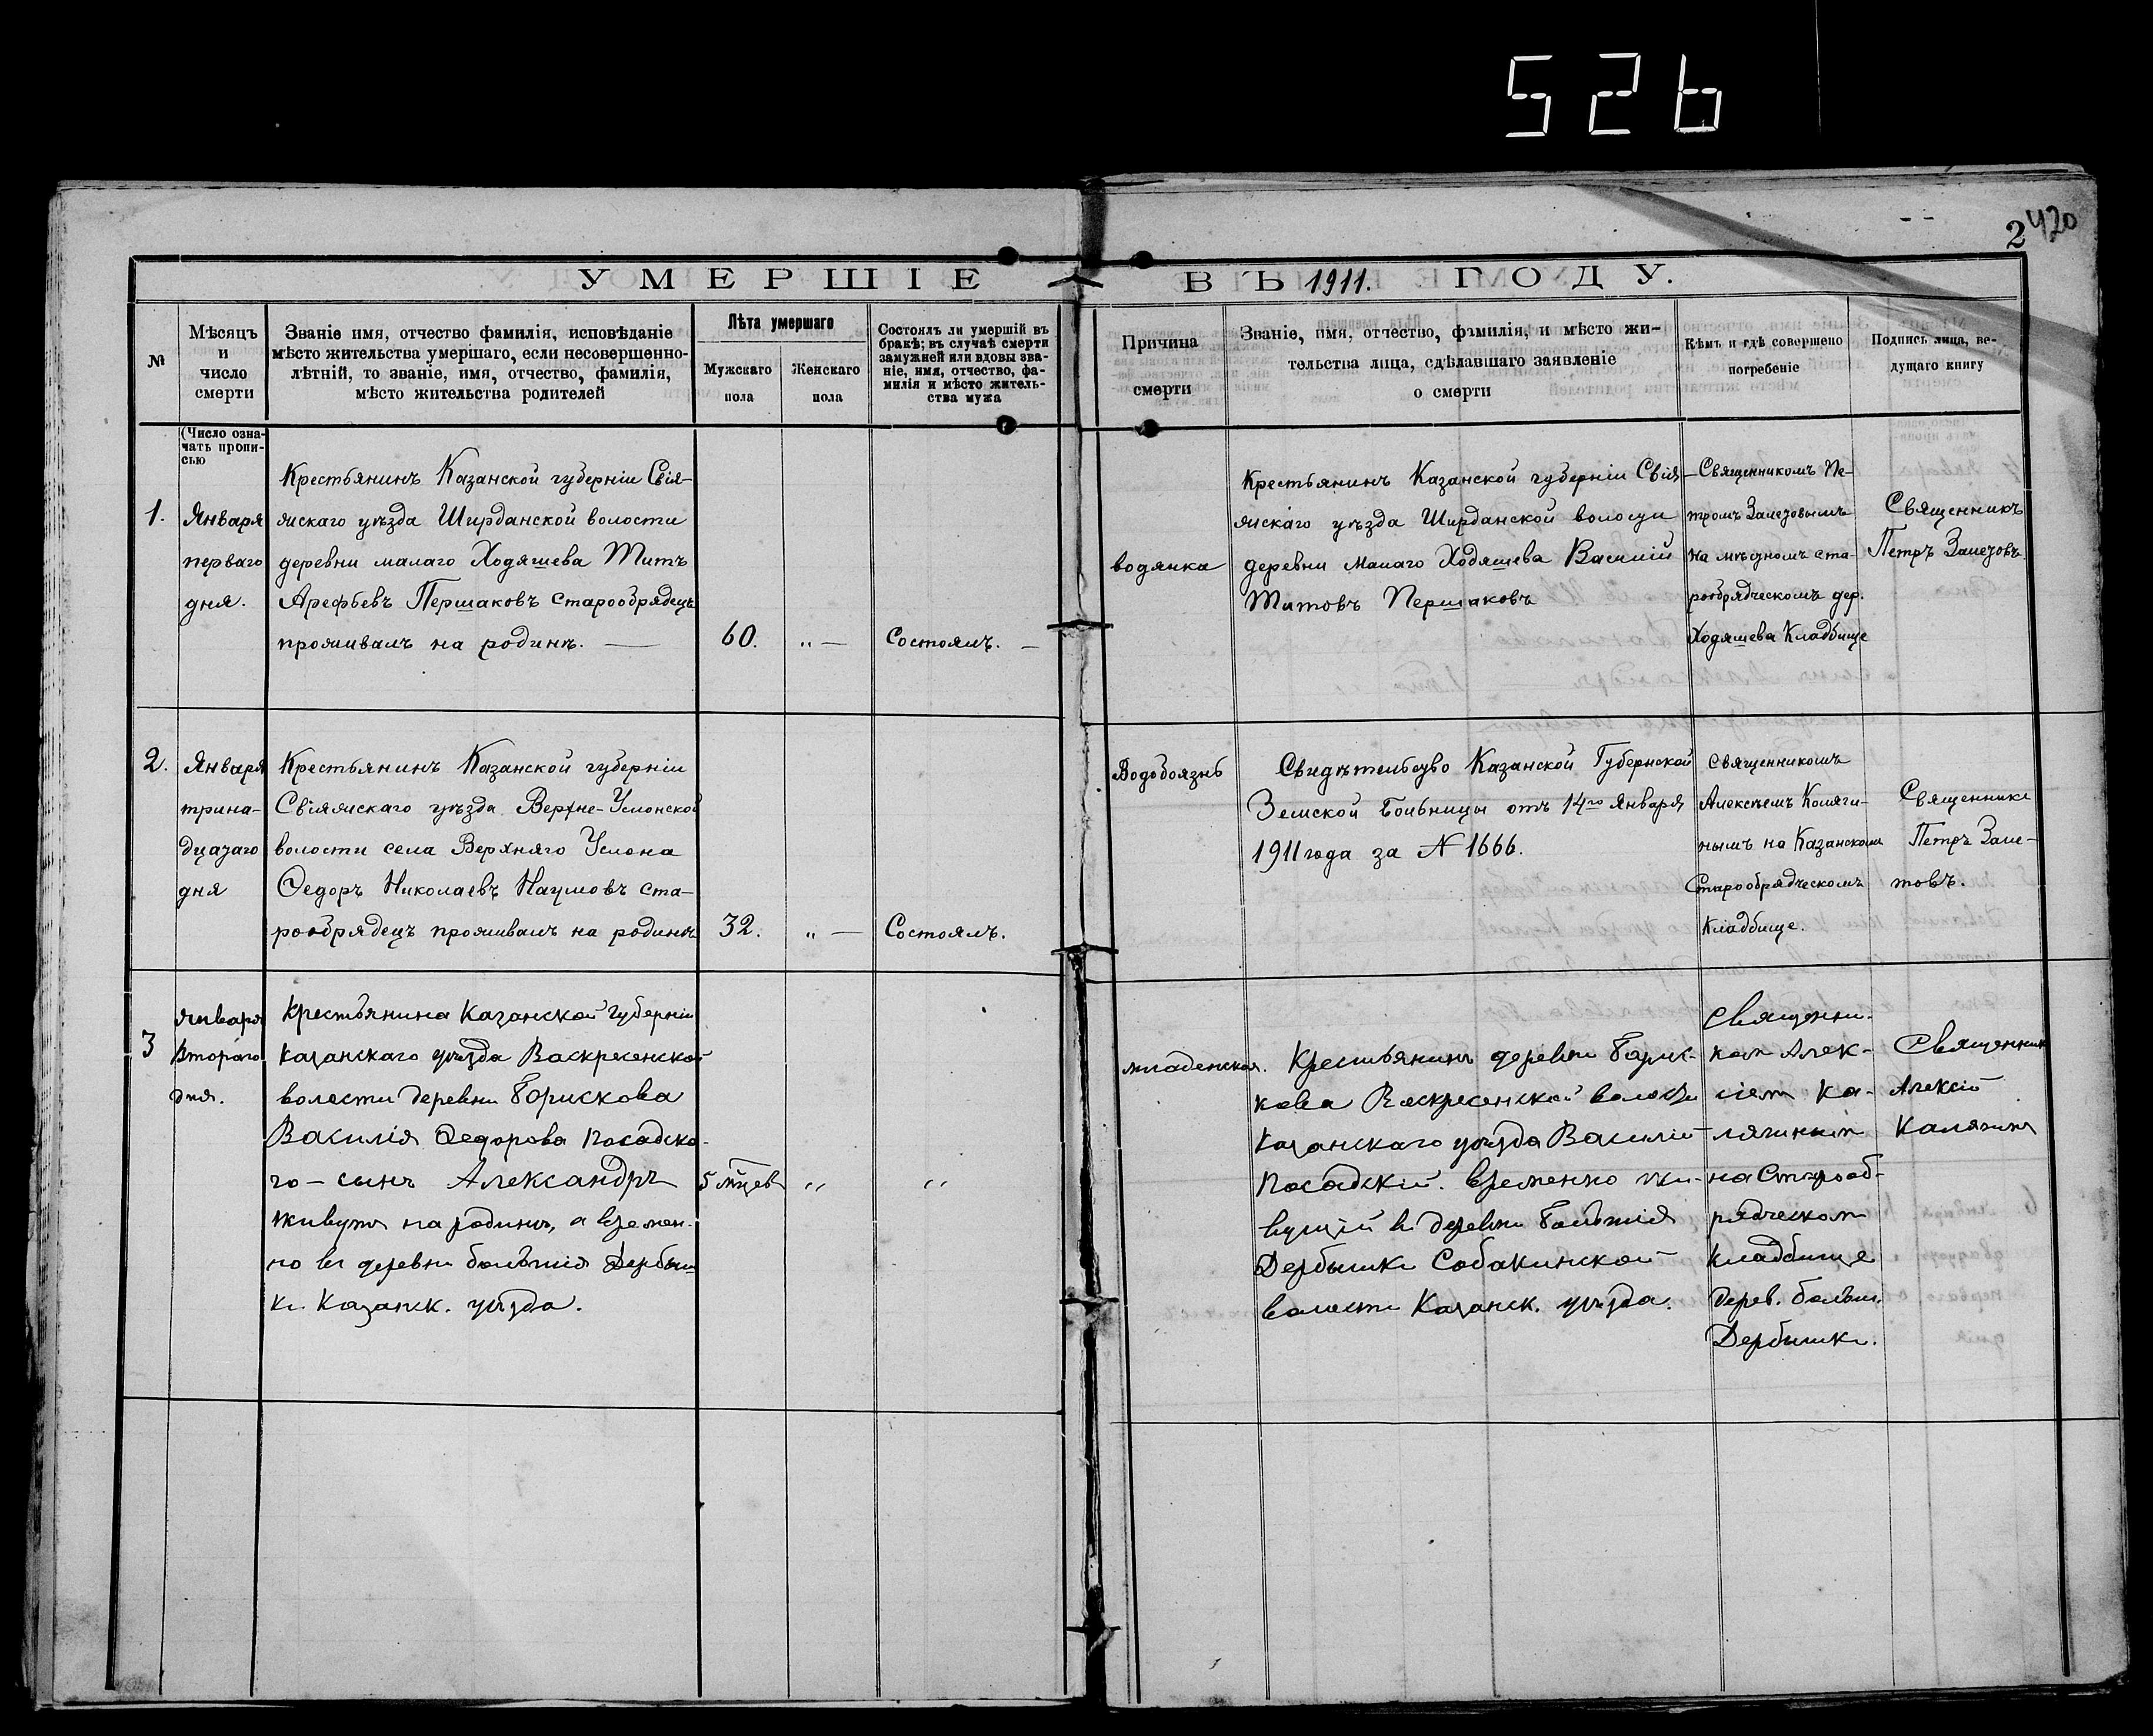 526
2
420
УМЕРШІЕ ВЪ 1911. ГОДУ.
№
Мѣсяцъ
и
число
смерти
Званіе имя, отчество фамилія, исповѣданіе
мѣсто жительства умершаго, если несовершенно-
лѣтній, то званіе, имя, отчество, фамилія,
мѣсто жительства родителей
Лѣта умершаго
Мужскаго
пола
Женскаго
пола
Состоялъ ли умершій въ
бракѣ; въ случаѣ смерти
замужней или вдовы зва-
ніе, имя, отчество, фа-
милія и мѣсто житель-
ства мужа
Причина
смерти
Званіе, имя, отчество, фамилія, и мѣсто жи-
тельства лица, сдѣлавшаго заявленіе
о смерти
Кѣмъ и гдѣ совершено
погребеніе
Подпись лица, ве-
дущаго книгу
(Число озна-
чать пропи-
сью
1.
Января
перваго
дня.
Крестьянинъ Казанской губерніи Свія-
жскаго уѣзда Ширданской волости
деревни малаго Ходяшева Титъ
Арефьевъ Першаковъ старообрядецъ
проживалъ на родинѣ. —
60.
„ —
Состоялъ. —
водянка
Крестьянинъ Казанской губерніи Свія-
жскаго уѣзда Ширданской волости
деревни малаго Ходяшева Василій
Титовъ Першаковъ
Священникомъ Пе-
тромъ Залетовымъ
на мѣстномъ ста-
рообрядческомъ дер.
Ходяшева Кладбище
Священникъ
Петръ Залетовъ
2.
Января
трина-
дцатаго
дня
Крестьянинъ Казанской губерніи
Свіяжскаго уѣзда Верхне-Услонской
волости села Верхняго Услона
Ѳедоръ Николаевъ Наумовъ ста-
рообрядецъ проживалъ на родинѣ
32.
„ —
Состоялъ.
Водобоязнь
Свидѣтельство Казанской Губернской
Земской Больницы отъ 14го Января
1911 года за № 1666.
Священникомъ
Алексѣемъ Коляги-
нымъ на Казанскомъ
Старообрядческомъ
Кладбище.
Священникъ
Петръ Зале-
товъ.
3
Января
Второго
дня.
Крестьянина Казанской Губерніи
Казанскаго уѣзда Васкресенской
воласти деревни Борискова
Василія Ѳедорова Посадска-
го - сынъ Александръ
живутъ на родинѣ, а времен-
но въ деревни большія Дербыш-
ки Казанск. уѣзда.
5 мѣцевъ
„
„
младенская.
Крестьянинъ деревни Борис-
кова Васкресенской воласти
Казанскаго уѣзда Василій
Посадскій. временно жи-
вущій въ деревни Большія
Дербышки Собакинской
воласти Казанск. уѣзда.
Священни-
ком Алек-
сіем Ка-
лягиным
на Старооб-
рядческом
кладбище
дерев. больш.
Дербышки.
Священник
Алексій
Калягинъ